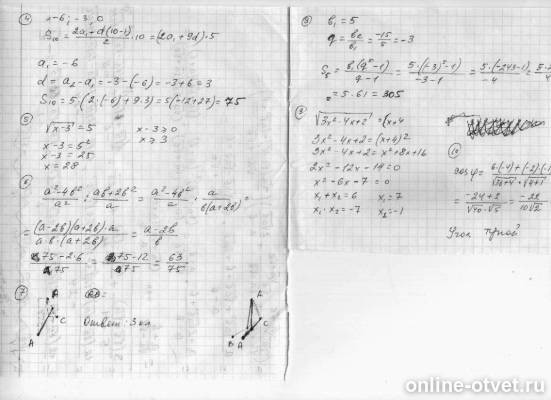 ④ -6; -3; 0
S₁₀ = (2a₁+d(10-1))/2 · 10 = (2a₁+9d)·5
a₁ = -6
d = a₂ - a₁ = -3-(-6) = -3+6 = 3
S₁₀ = 5·(2·(-6)+9·3) = 5(-12+27) = 75
⑤
√(x-3) = 5 x-3 ≥ 0
x-3 = 5² x ≥ 3
x-3 = 25
x = 28
⑥
(a²-4b²)/a² : (ab+2b²)/a = (a²-4b²)/a² · a/(b(a+2b)) =
= ((a-2b)(a+2b)·a)/(a·b·(a+2b)) = (a-2b)/b
(75-2·6)/75 = (75-12)/75 = 63/75
⑦
A
C
A
Ответ: 3 кл
A
C
B A
b₁ = 5
q = b₂/b₁ = -15/5 = -3
S₅ = b₁(q⁵-1)/(q-1) = 5·(-3)⁵-1)/(-3-1) = 5·(-243-1)/-4 =
= 5·61 = 305
√(3x²-4x+2) = (x+4
3x²-4x+2 = (x+4)²
3x²-4x+2 = x²+8x+16
2x²-12x-14=0
x²-6x-7=0
x₁+x₂ = 6 x₁ = 7
x₁·x₂ = -7 x₂ = -1
⑩
cosφ =
= (-24+2)/(√40·√5) = -22/(10√2)
Угол тупой
online-otvet.ru